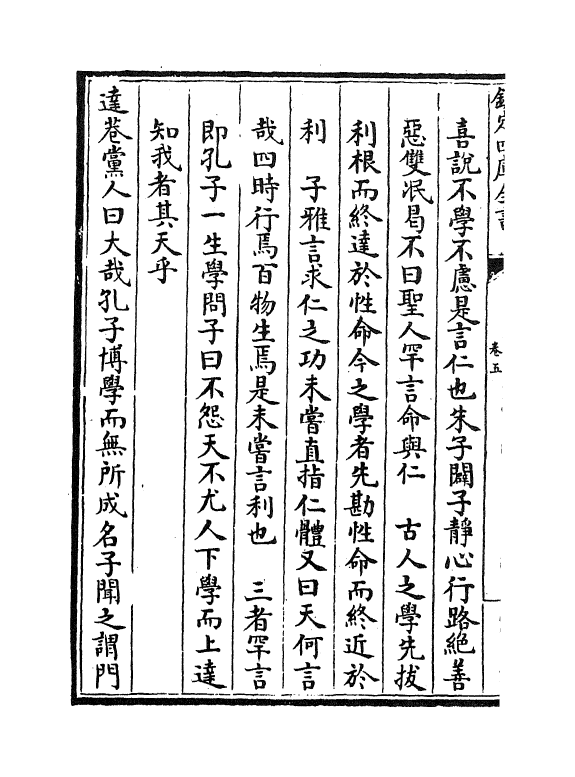 欽定四庫全書
卷五
喜說不學不慮是言仁也朱子闢子靜心行路絕善
惡雙泯曷不曰聖人罕言命與仁　古人之學先拔
利根而終達於性命今之學者先勘性命而終近於
利　子雅言求仁之功未嘗直指仁體又曰天何言
哉四時行焉百物生焉是未嘗言利也　三者罕言
即孔子一生學問子曰不怨天不尤人下學而上達
知我者其天乎
達巷黨人曰大哉孔子博學而無所成名子聞之謂門